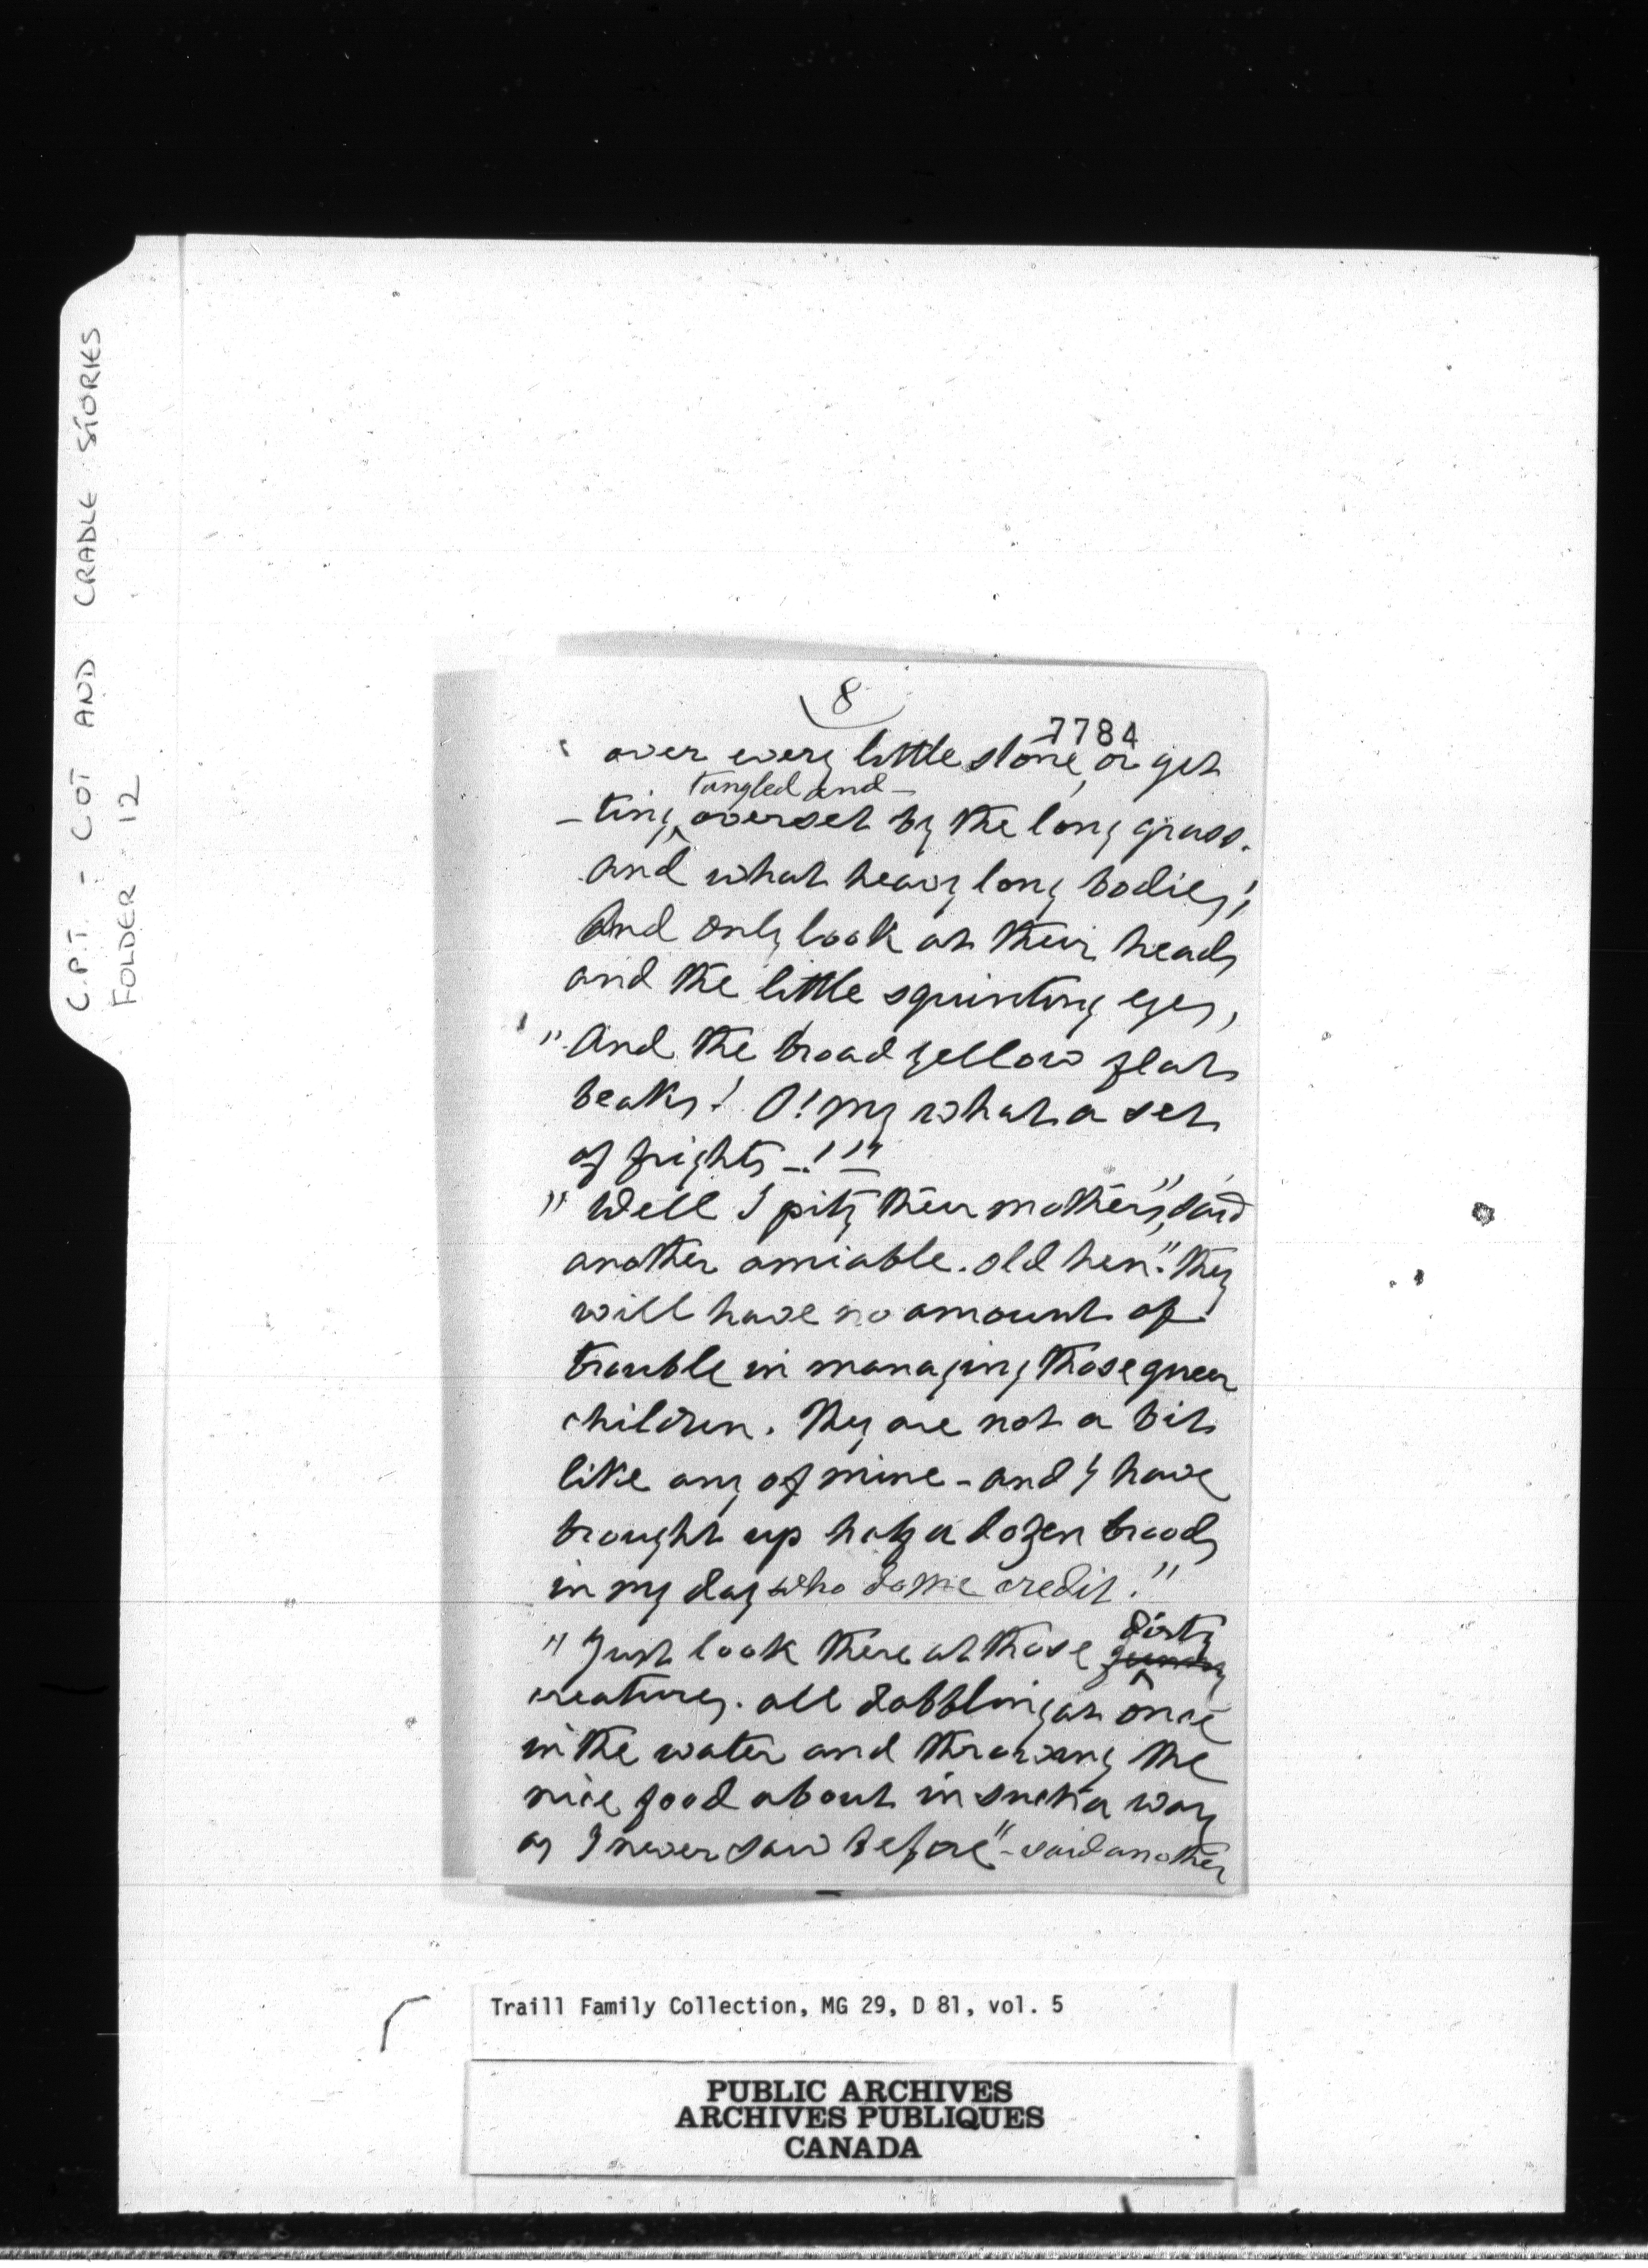 C.P.T. - COT AND CRADLE STORIES
FOLDER - 12
8
7784
over every little stone, or get
tangled and -
- ting overset by the long grass.
and what heavy long bodies;
And only look at their heads
and the little squinting eyes,
"And the broad yellow flat
beaks! O! my what a set
of frights - ! ! "
" Well I pity their mothers", said
another amiable. old hen". they
will have no amount of
trouble in managing those queer
children. They are not a bit
like any of mine - and I have
brought up half a dozen broods
in my day who do me credit."
dirty
" Just look there at those
creatures. all dabbling at once
in the water and throwing the
nice food about in such a way
as I never saw before" - said another
Traill Family Collection, MG 29, D 81, vol. 5
PUBLIC ARCHIVES
ARCHIVES PUBLIQUES
CANADA